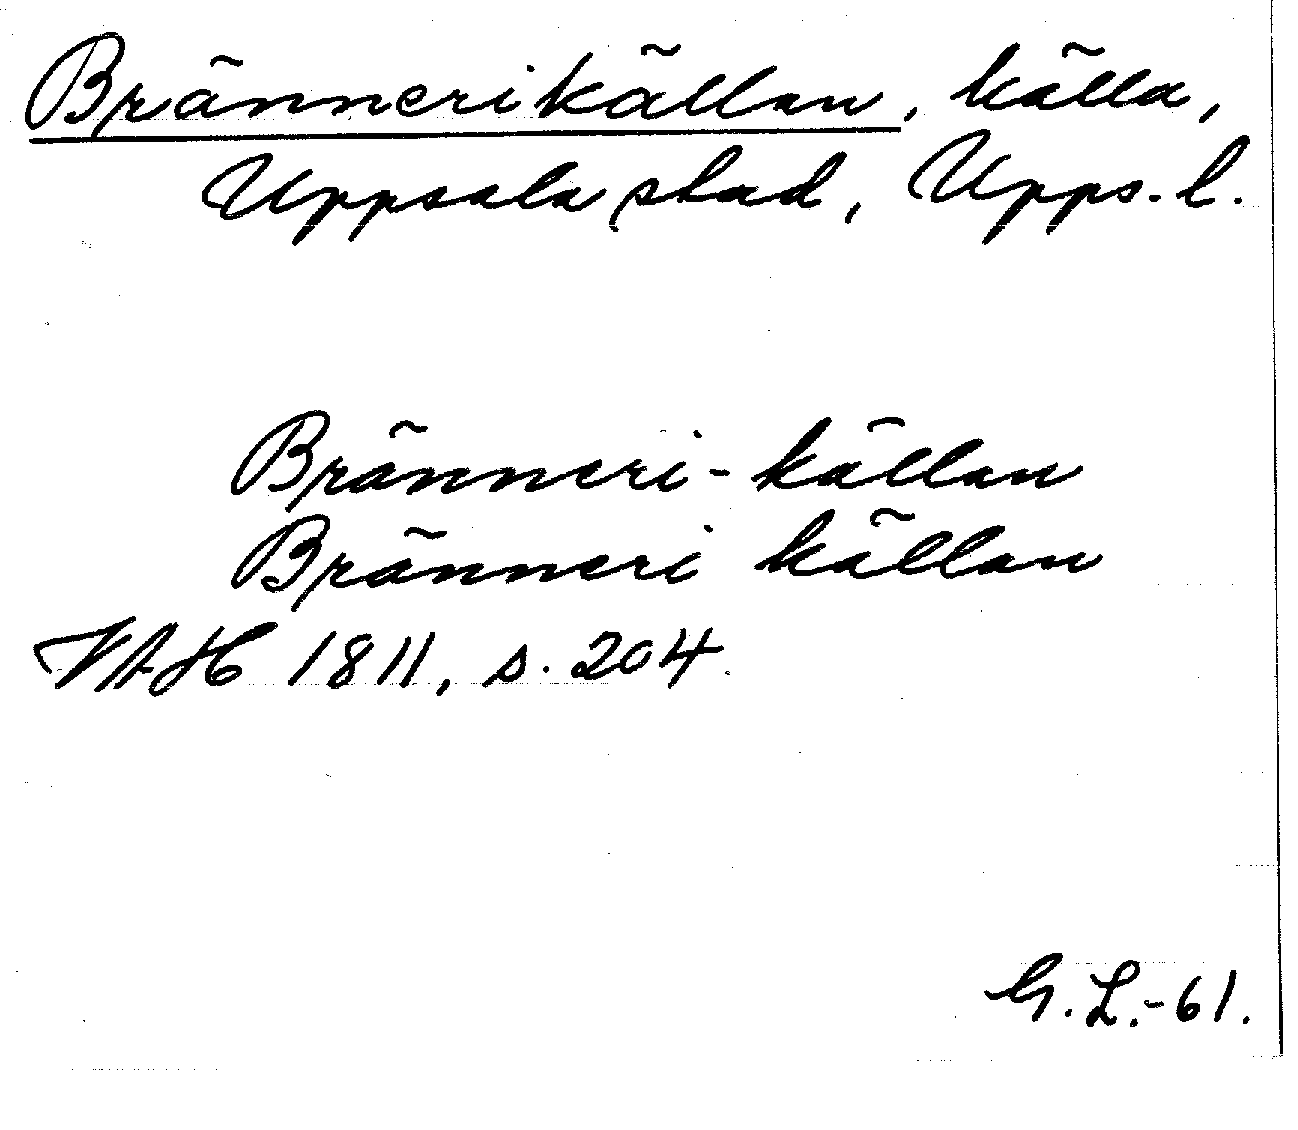 Brännerikällan, källa,
Uppsala stad, Upps. l.
Bränneri-källan
Bränneri källan
VAH 1811, s. 204.
G. L. - 61.